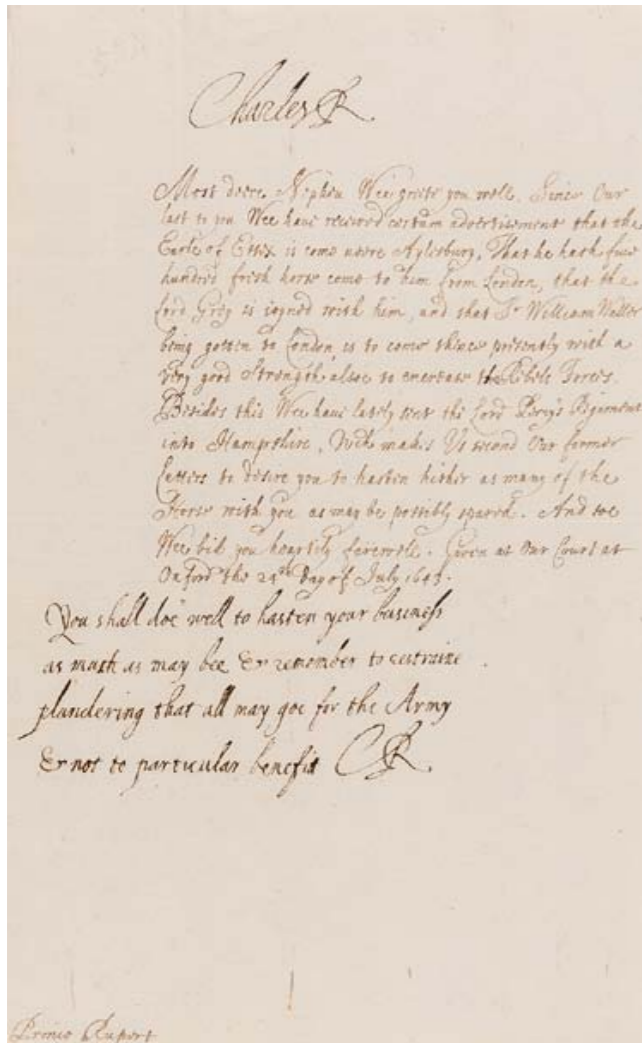 Charles R
Most deere Nephew Wee greete you well. Since Our
last to you Wee have received certain advertisement that the
Earle of Essex is come neere Aylesbury, That he hath five
hundred fresh horse come to him from London, that the
Lord Grey is joyned with him, and that Sr William Waller
being gotten to London, is to come thence presently with a
very good Strength alsoe to encrease the Rebels Forces.
Besides this Wee have lately sent the Lord Percy's Regiment
into Hampshire, Wch makes Us second Our former
Letters to desire you to hasten hither as many of the
Horse with you as may be possibly spared. And soe
Wee bid you heartily farewell. Given at Our Court at
Oxford the Day of July 1643.
You shall doe well to hasten your business
as much as may bee & remember to restraine
plundering that all may goe for the Army
& not to particular benefit CR
Prince Rupert